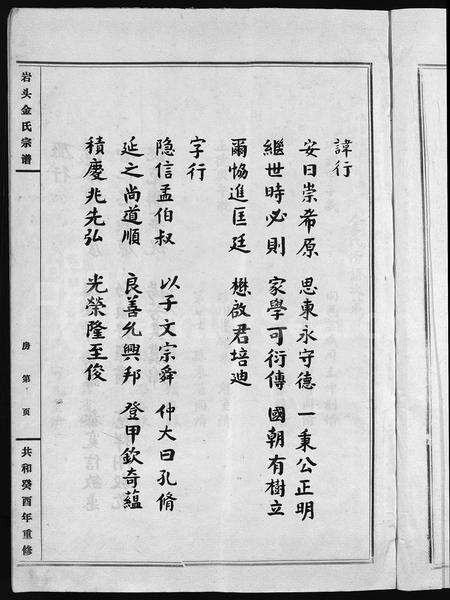 諱行
安日崇希原 思東永守德 一秉公正明
繼世時必則 家學可衍傳 國朝有樹立
爾協進匡廷 懋啟君培迪
字行
隐信孟伯叔 以子文宗舜 仲大曰孔脩
延之尚道順 良善允興邦 登甲欽奇蘊
積慶兆先弘 光榮隆至俊
岩头金氏宗谱
房 第 页
共和癸酉年重修